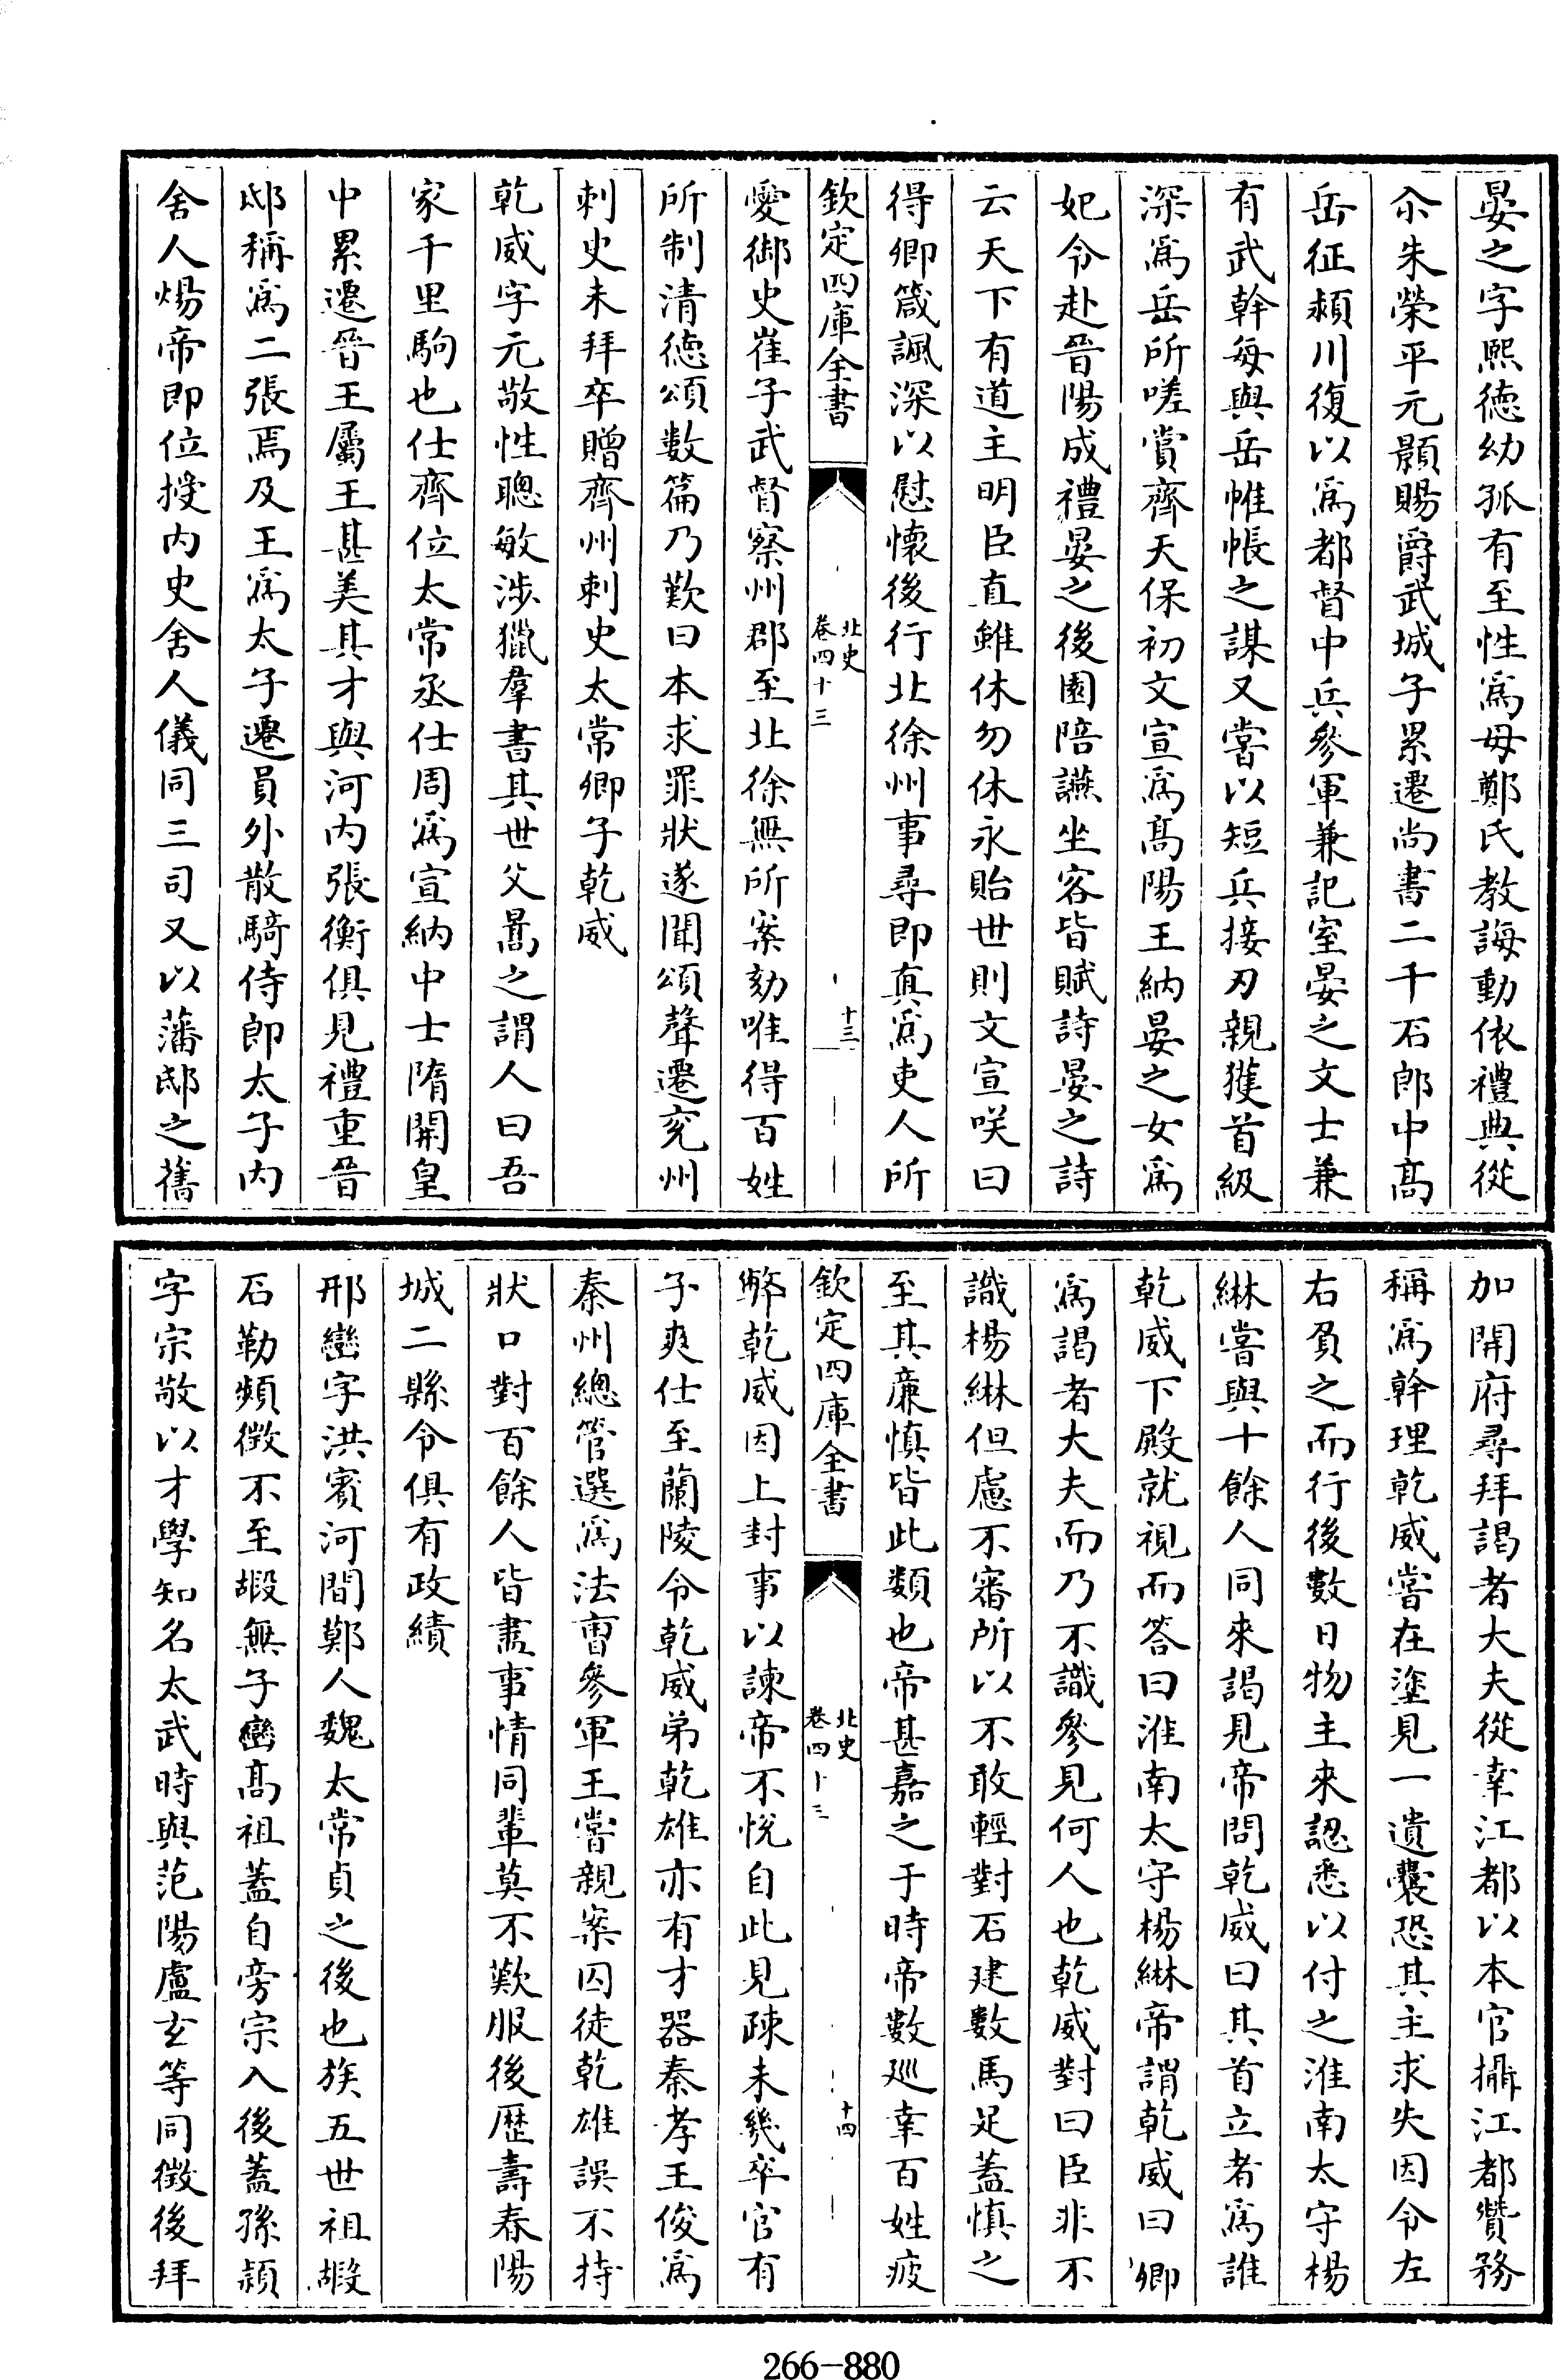 晏之字熙徳幼孤有至性爲母鄭氏教誨動依禮典從
尒朱榮平元顥賜爵武城子累遷尚書二千石郎中髙
岳征潁川復以爲都督中兵參軍兼記室晏之文士兼
有武幹每與岳帷帳之謀又嘗以短兵接刃親獲首級
深爲岳所嗟賞齊天保初文宣爲髙陽王納晏之女爲
妃令赴晉陽成禮晏之後園陪讌坐客皆賦詩晏之詩
云天下有道主明臣直雖休勿休永貽世則文宣咲曰
得卿箴諷深以慰懷後行北徐州事尋即真爲吏人所
欽定四庫全書
北史
卷四十三
十三
愛御史崔子武督察州郡至北徐無所案劾唯得百姓
所制清德頌數篇乃歎曰本求罪狀遂聞頌聲遷兖州
刺史未拜卒贈齊州刺史太常卿子乾威
乾威字元敬性聰敏涉獵羣書其世父暠之謂人曰吾
家千里駒也仕齊位太常丞仕周爲宣納中士隋開皇
中累遷晉王屬王甚美其才與河内張衡俱見禮重晉
邸稱爲二張焉及王爲太子遷員外散騎侍郎太子内
舍人煬帝即位授内史舍人儀同三司又以藩邸之舊
加開府尋拜謁者大夫從幸江都以本官攝江都贊務
稱爲幹理乾威嘗在塗見一遺囊恐其主求失因令左
右負之而行後數日物主來認悉以付之淮南太守楊
綝嘗與十餘人同來謁見帝問乾威曰其首立者爲誰
乾威下殿就視而答曰淮南太守楊綝帝謂乾威曰卿
爲謁者大夫而乃不識參見何人也乾威對曰臣非不
識楊綝但慮不審所以不敢輕對石建數馬足蓋慎之
至其廉慎皆此類也帝甚嘉之于時帝數廵幸百姓疲
欽定四庫全書
北史
卷四十三
十四
弊乾威因上封事以諫帝不悅自此見疎未幾卒官有
子爽仕至蘭陵令乾威弟乾雄亦有才器秦孝王俊爲
秦州總管選爲法曹參軍王嘗親案囚徒乾雄誤不持
狀口對百餘人皆盡事情同輩莫不歎服後歷壽春陽
城二縣令俱有政績
邢巒字洪賓河間鄭人魏太常貞之後也族五世祖嘏
石勒頻徵不至嘏無子巒髙祖蓋自旁宗入後蓋孫潁
字宗敬以才學知名太武時與范陽盧玄等同徵後拜
266-880